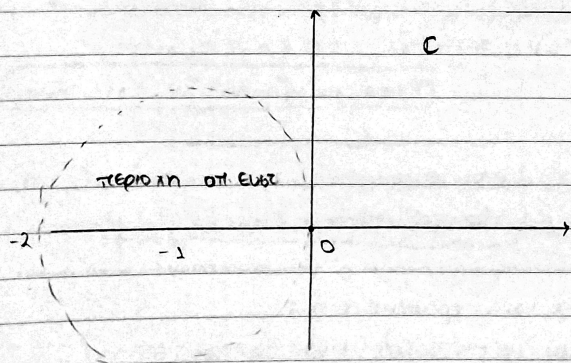 C
περιοχη απ. ευστ
-2
-1
0